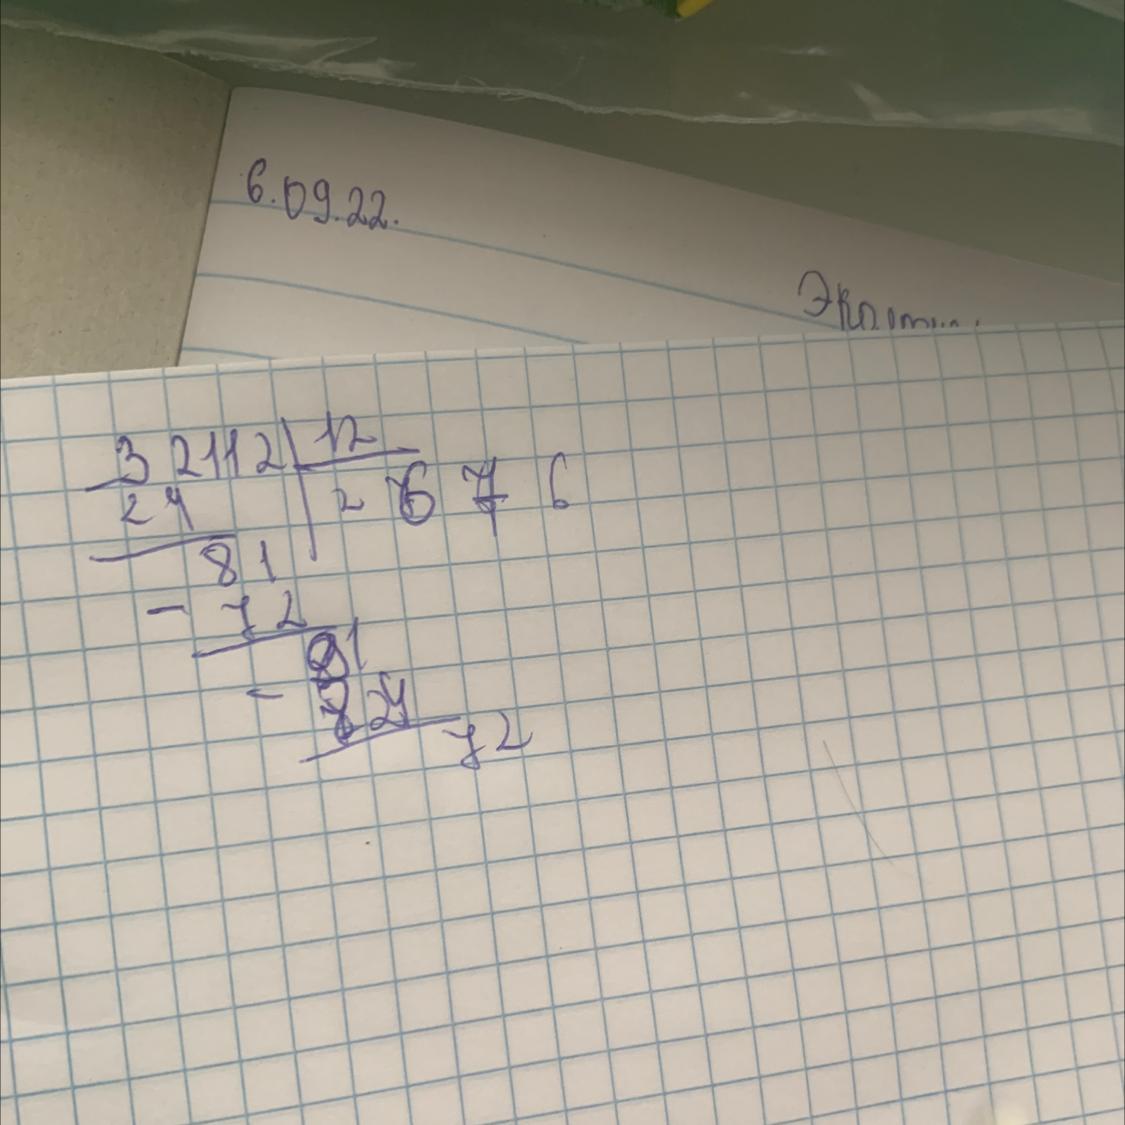 6.09.22.
32112 12
24 2 6 7 6
81
- 72
91
- 84
72